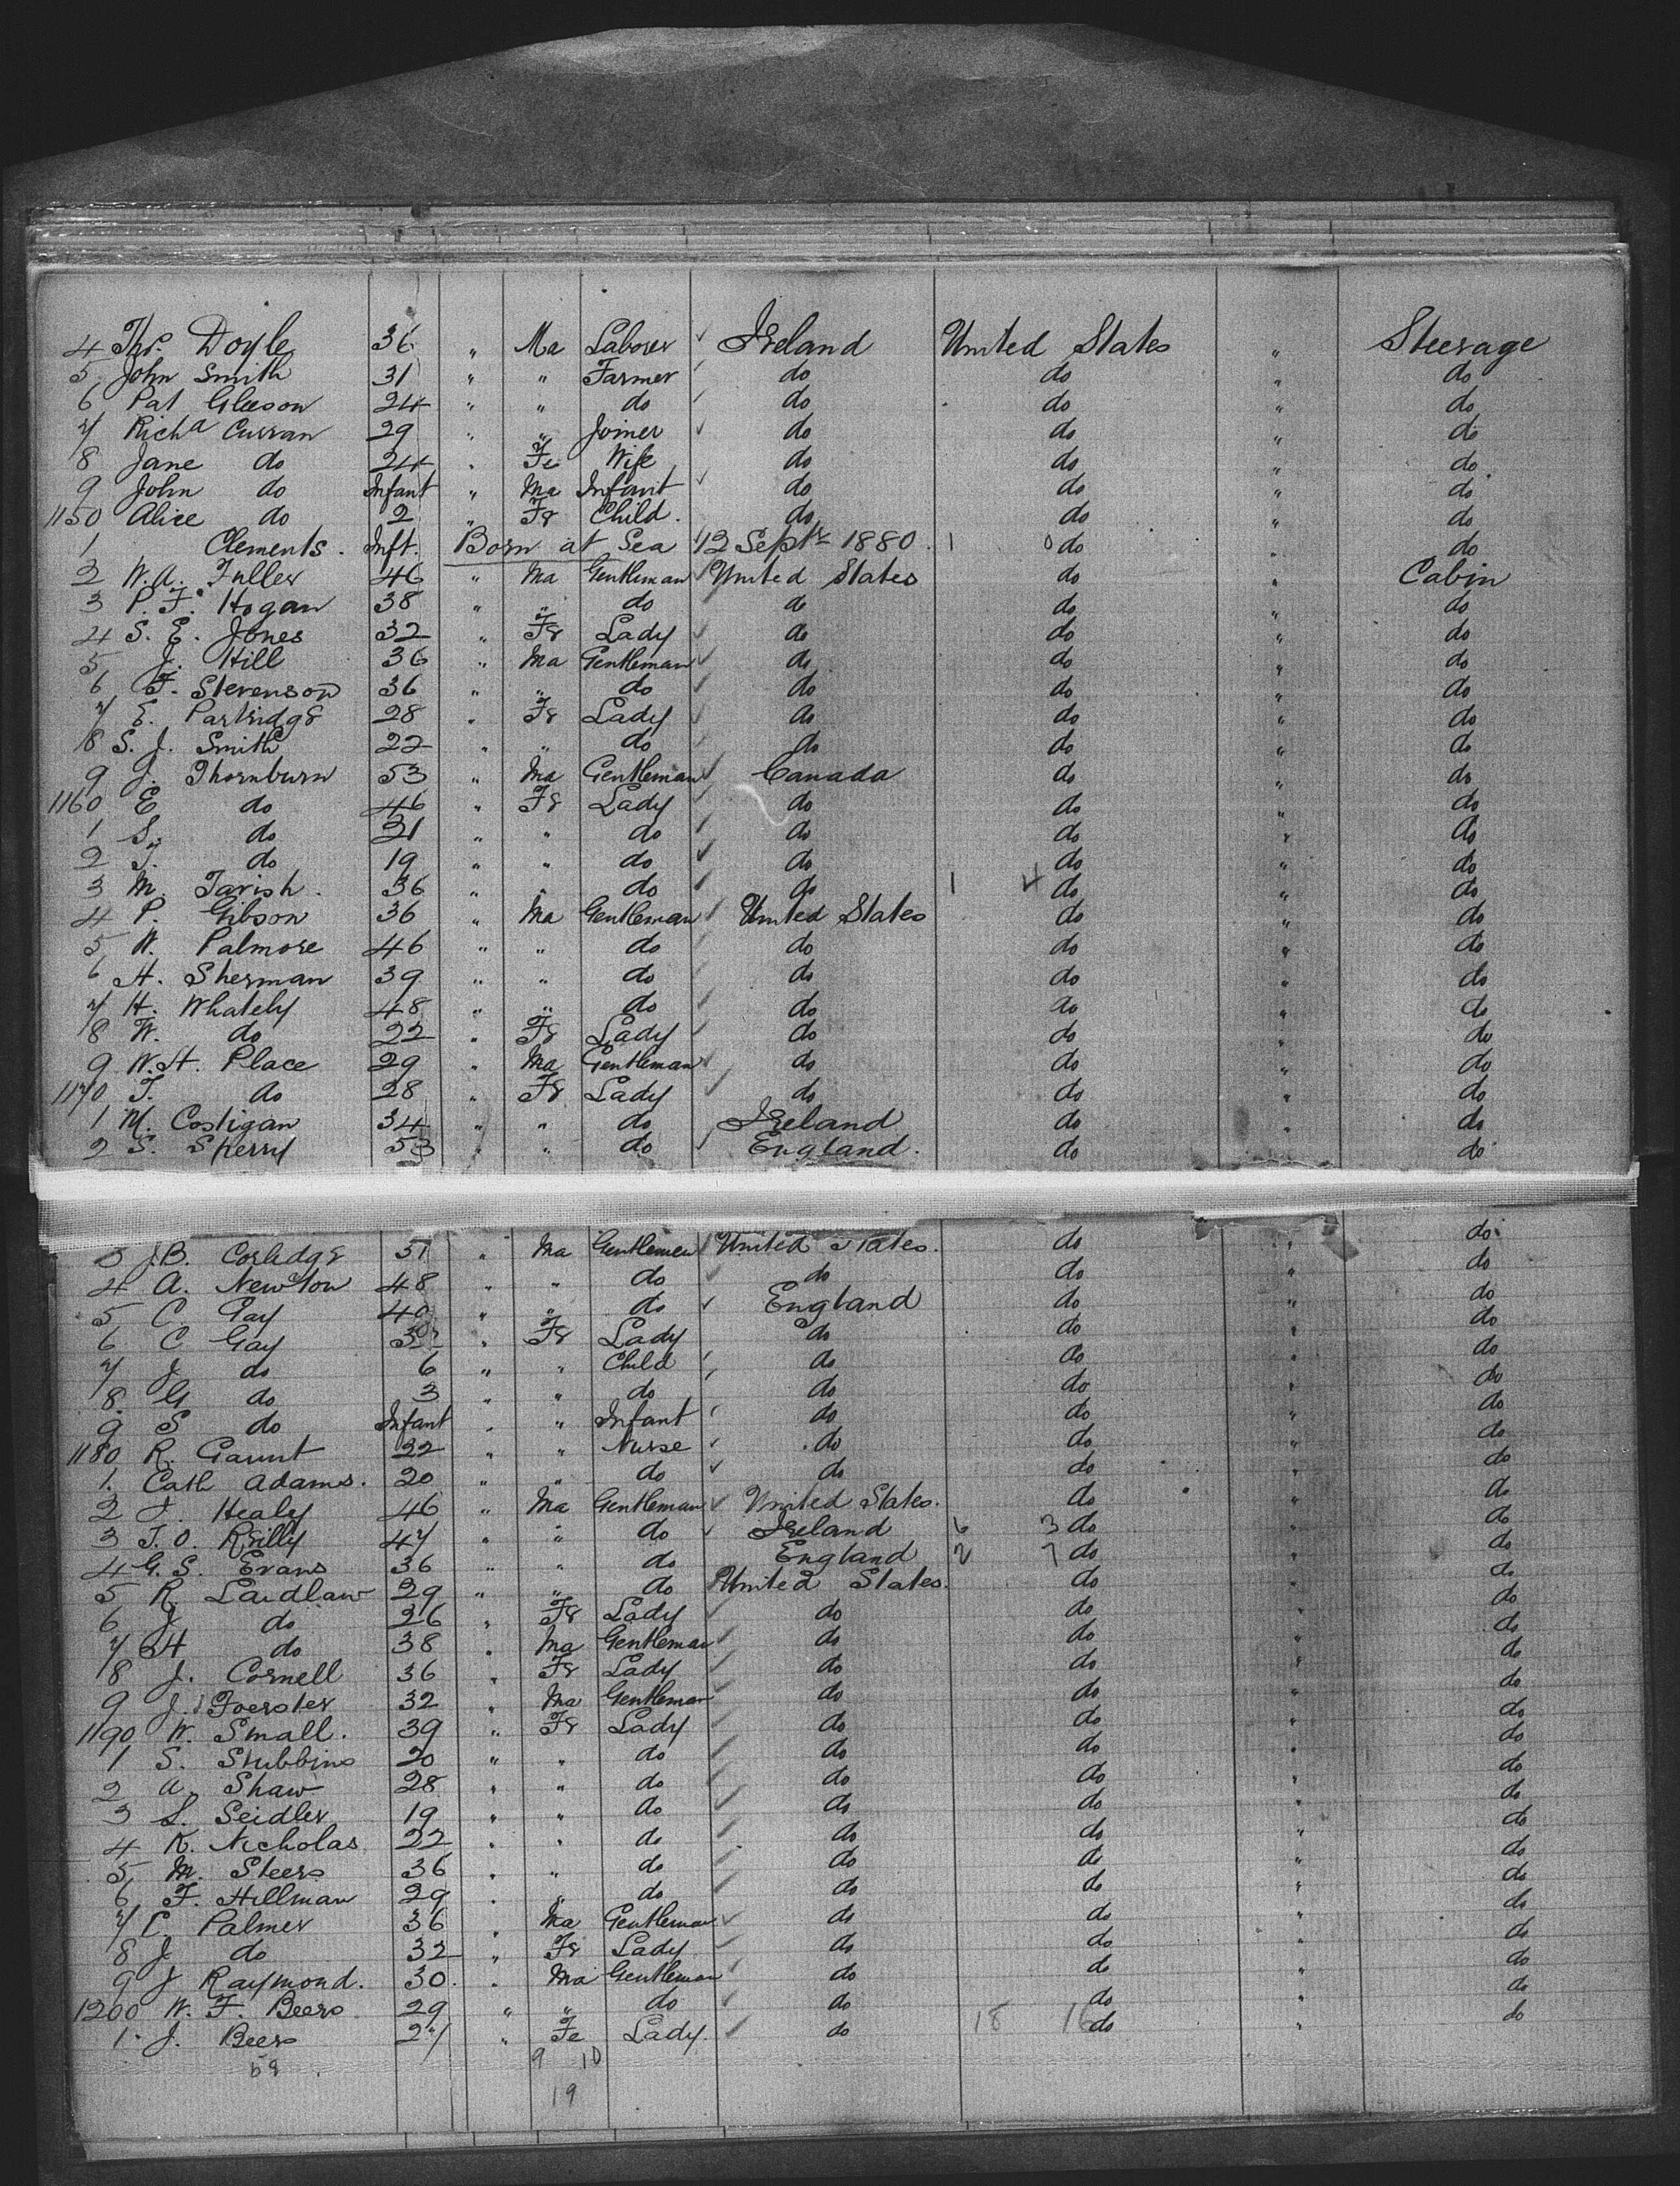 4 Thos. Doyle 36 " Ma Laborer ✓ Ireland United States " Steerage
5 John Smith 31 " " Farmer ✓ do do " do
6 Pat Gleeson 24 " " do ✓ do do " do
7 Richd Curran 29 " " Joiner ✓ do do " do
8 Jane do 24 " Fe Wife do do " do
9 John do Infant " Ma Infant ✓ do do " do
1150 Alice do 2 " Fe Child. do do " do
1 Clements. Inft. Born at Sea 12 Septr 1880. 1 0 do " do
2 W.A. Fuller 46 " Ma Gentleman ✓ United States do " Cabin
3 P.F. Hogan 38 " " do do do " do
4 S.E. Jones 32 " Fe Lady ✓ do do " do
5 J. Hill 36 " Ma Gentleman ✓ do do " do
6 F. Stevenson 36 " " do ✓ do do " do
7 E. Partridge 28 " Fe Lady ✓ do do " do
8 S.J. Smith 22 " " do ✓ do do " do
9 J. Thornburn 53 " Ma Gentleman ✓ Canada do " do
1160 E do 46 " Fe Lady ✓ do do " do
1 S. do 21 " " do ✓ do do " do
2 T. do 19 " " do ✓ do do " do
3 M. Tarish. 36 " " do ✓ do 1 4 do " do
4 P. Gibson 36 " Ma Gentleman ✓ United States do " do
5 W. Palmore 46 " " do ✓ do do " do
6 H. Sherman 39 " " do ✓ do do " do
7 H. Whately 48 " " do ✓ do do " do
8 W. do 22 " Fe Lady ✓ do do " do
9 W.H. Place 29 " Ma Gentleman ✓ do do " do
1170 T. do 28 " Fe Lady ✓ do do " do
1 M. Costigan 34 " " do Ireland do " do
2 S. Sherry 53 " " do ✓ England. do " do
3 J.B. Coolidge 31 " Ma Gentlemen ✓ United States. do " do
4 A. Newton 48 " " do ✓ do do " do
5 C. Gay 40 " " do ✓ England do " do
6 C Gay " Fe Lady do do " do
7 J do 6 " " Child ✓ do do " do
8. G do 3 " " do ✓ do do " do
9 S do Infant " " Infant ✓ do do " do
1180 R. Gaunt 22 " " Nurse ✓ do do " do
1. Cath Adams. 20 " " do ✓ do do " do
2 Healy 46 " Ma Gentleman ✓ United States. do " do
3 T.O. Reilly 47 " " do ✓ Ireland 6 3 do " do
4 G.S. Evans 36 " " do England 2 7 do " do
5 R. Laidlaw 29 " " do United States. do " do
6 J do 26 " Fe Lady ✓ do do " do
7 H do 38 " Ma Gentleman ✓ do do " do
8 J. Cornell 36 " Fe Lady ✓ do do " do
9 J. Foerster 32 " Ma Gentleman ✓ do do " do
1190 W. Small. 39 " Fe Lady ✓ do do " do
1 S. Stubbins 20 " " do ✓ do do " do
2 A. Shaw 28 " " do ✓ do do " do
3 L. Seidler 19 " " do ✓ do do " do
4 K. Nicholas 22 " " do ✓ do do " do
5 M. Steers 36 " " do ✓ do do " do
6 F. Hillman 29 " " do ✓ do do " do
7 Palmer 36 " Ma Gentleman ✓ do do " do
8 J do 32 " Fe Lady ✓ do do " do
9 J Raymond. 30. " Ma Gentleman do do " do
1200 W.F. Beers 29 " " do ✓ do do " do
1. J. Beers 27 " Fe Lady. ✓ do 18 16 do " do
58 9 10
19